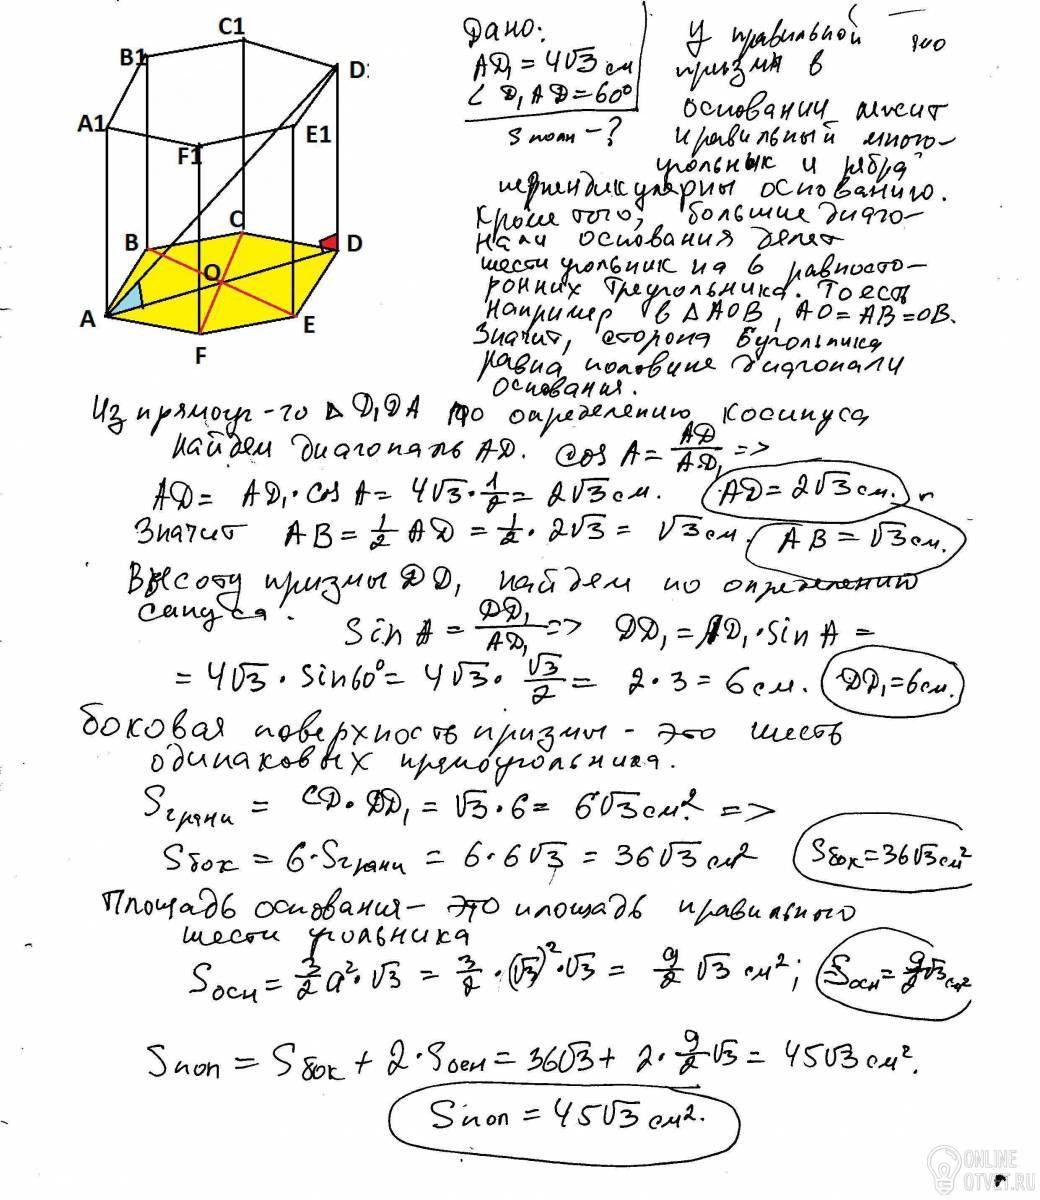 C1
B1
D1
A1
E1
F1
C
B
D
O
A
E
F
Дано:
AD₁ = 4√3 см
∠ D₁AD = 60°
Sполн - ?
У правильной
призмы в
основании лежит
правильный много-
угольник и рёбра
перпендикулярны основанию.
Кроме того, большие диаго-
нали основания делят
шестиугольник на 6 равносто-
ронних треугольника. То есть
например в △AOB, AO = AB = OB.
Значит, сторона 6угольника
равна половине диагонали
основания.
Из прямоуг-го △ D₁DA по определению косинуса
найдем диагональ AD. cos A = AD/AD₁ =>
AD = AD₁ · cos A = 4√3 · 1/2 = 2√3 см. AD = 2√3 см.
Значит AB = 1/2 AD = 1/2 · 2√3 = √3 см. AB = √3 см.
Высоту призмы DD₁ найдем по определению
синуса.
sin A = DD₁/AD₁ => DD₁ = AD₁ · sin A =
= 4√3 · sin60° = 4√3 · √3/2 = 2 · 3 = 6 см. DD₁ = 6 см.
боковая поверхность призмы - это шесть
одинаковых прямоугольника.
Sграни = CD · DD₁ = √3 · 6 = 6√3 см² =>
Sбок = 6 · Sграни = 6 · 6√3 = 36√3 см² Sбок = 36√3 см²
Площадь основания - это площадь правильного
шестиугольника
Sосн = 3/2 a² · √3 = 3/2 · (√3)² · √3 = 9/2 √3 см²; Sосн = 9/2 √3 см²
Sпоп = Sбок + 2 · Sосн = 36√3 + 2 · 9/2 √3 = 45√3 см².
Sпоп = 45√3 см².
ONLINE
OTVET.RU